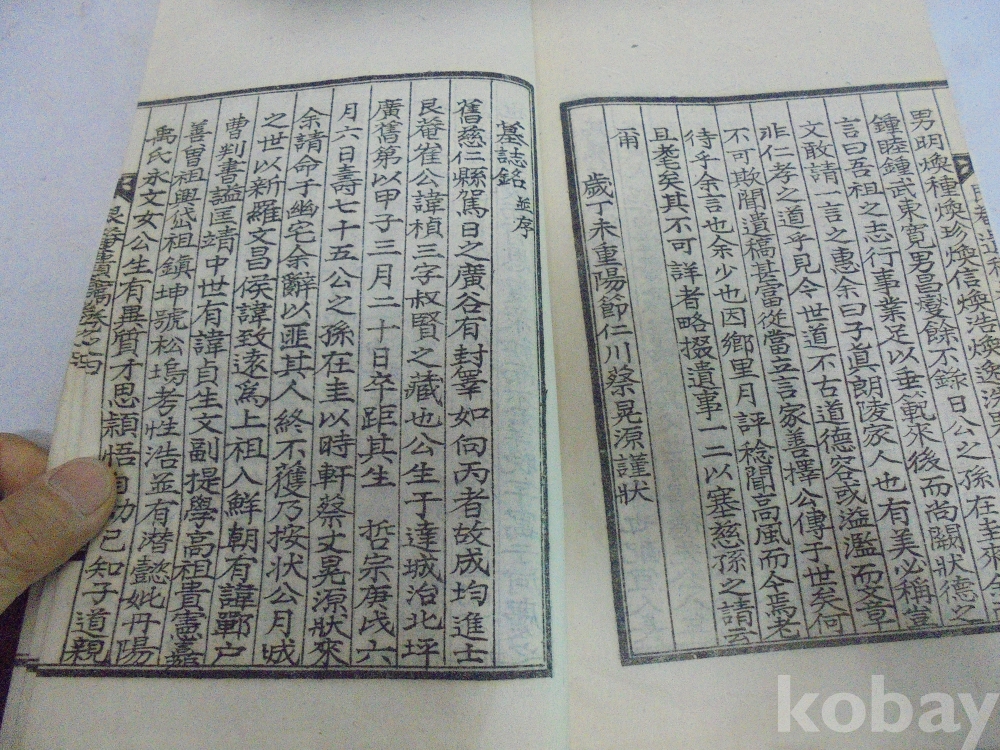 男明煥種煥珍煥信煥浩煥
鍾睦鍾武東寬男昌燮餘不錄日公之孫在圭來
言曰吾祖之志行事業足以垂範來後而尚闕狀德之
文敢請一言之惠余曰子眞朗陵家人也有美必稱當
非仁孝之道乎見今世道不古道德吝或溢濫而文章
不可欺聞遺稿甚富從當立言家善擇公傳子世矣何
待乎余言也余少也因鄉里月評稔聞高風而今焉老
且老矣其不可詳者略掇遺事一二以塞慈孫之請云
爾
歲丁未重陽節仁川蔡晃源謹狀
墓誌銘 並序
舊慈仁縣駕日之廣谷有封睪如向丙者故成均進士
艮庵崔公諱楨三字叔賢之藏也公生于達城治北坪
廣舊第以甲子三月二十日卒距其生 哲宗庚戌六
月六日壽七十五公之孫在圭以時軒蔡丈晃源狀來
余請命子幽宅余辭以匪其人終不獲乃按狀公月城
之世以新羅文昌侯諱致遠爲上祖入鮮朝有諱鄲户
曹判書諡匡靖中世有諱自生文副提學高祖貴憲嘉
善曾祖興岱祖鎭坤號松塢考性浩並有潛懿妣丹陽
禹氏永文女公生有異質才思穎悟自幼已知子道親
kobay